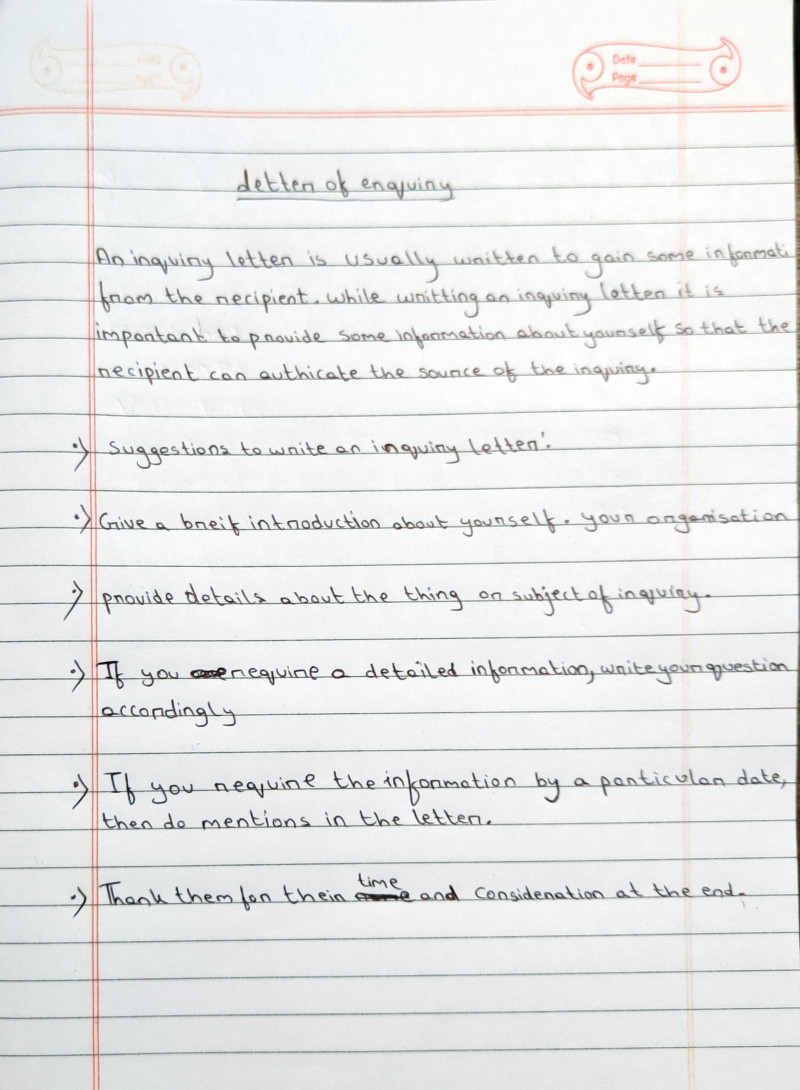 Date
Page
Letter of enquiry
An inquiry letter is usually written to gain some informati
from the recipient. while writting an inquiry letter it is
important to provide some information about yourself so that the
recipient can authicate the source of the inquiry.
·) Suggestions to write an inquiry letter:
·) Give a breif introduction about yourself. your organisation
·) provide details about the thing or subject of inquiry.
·) If you require a detailed information, write your question
accordingly
·) If you require the information by a particular date,
then do mentions in the letter.
·) Thank them for their time and consideration at the end.